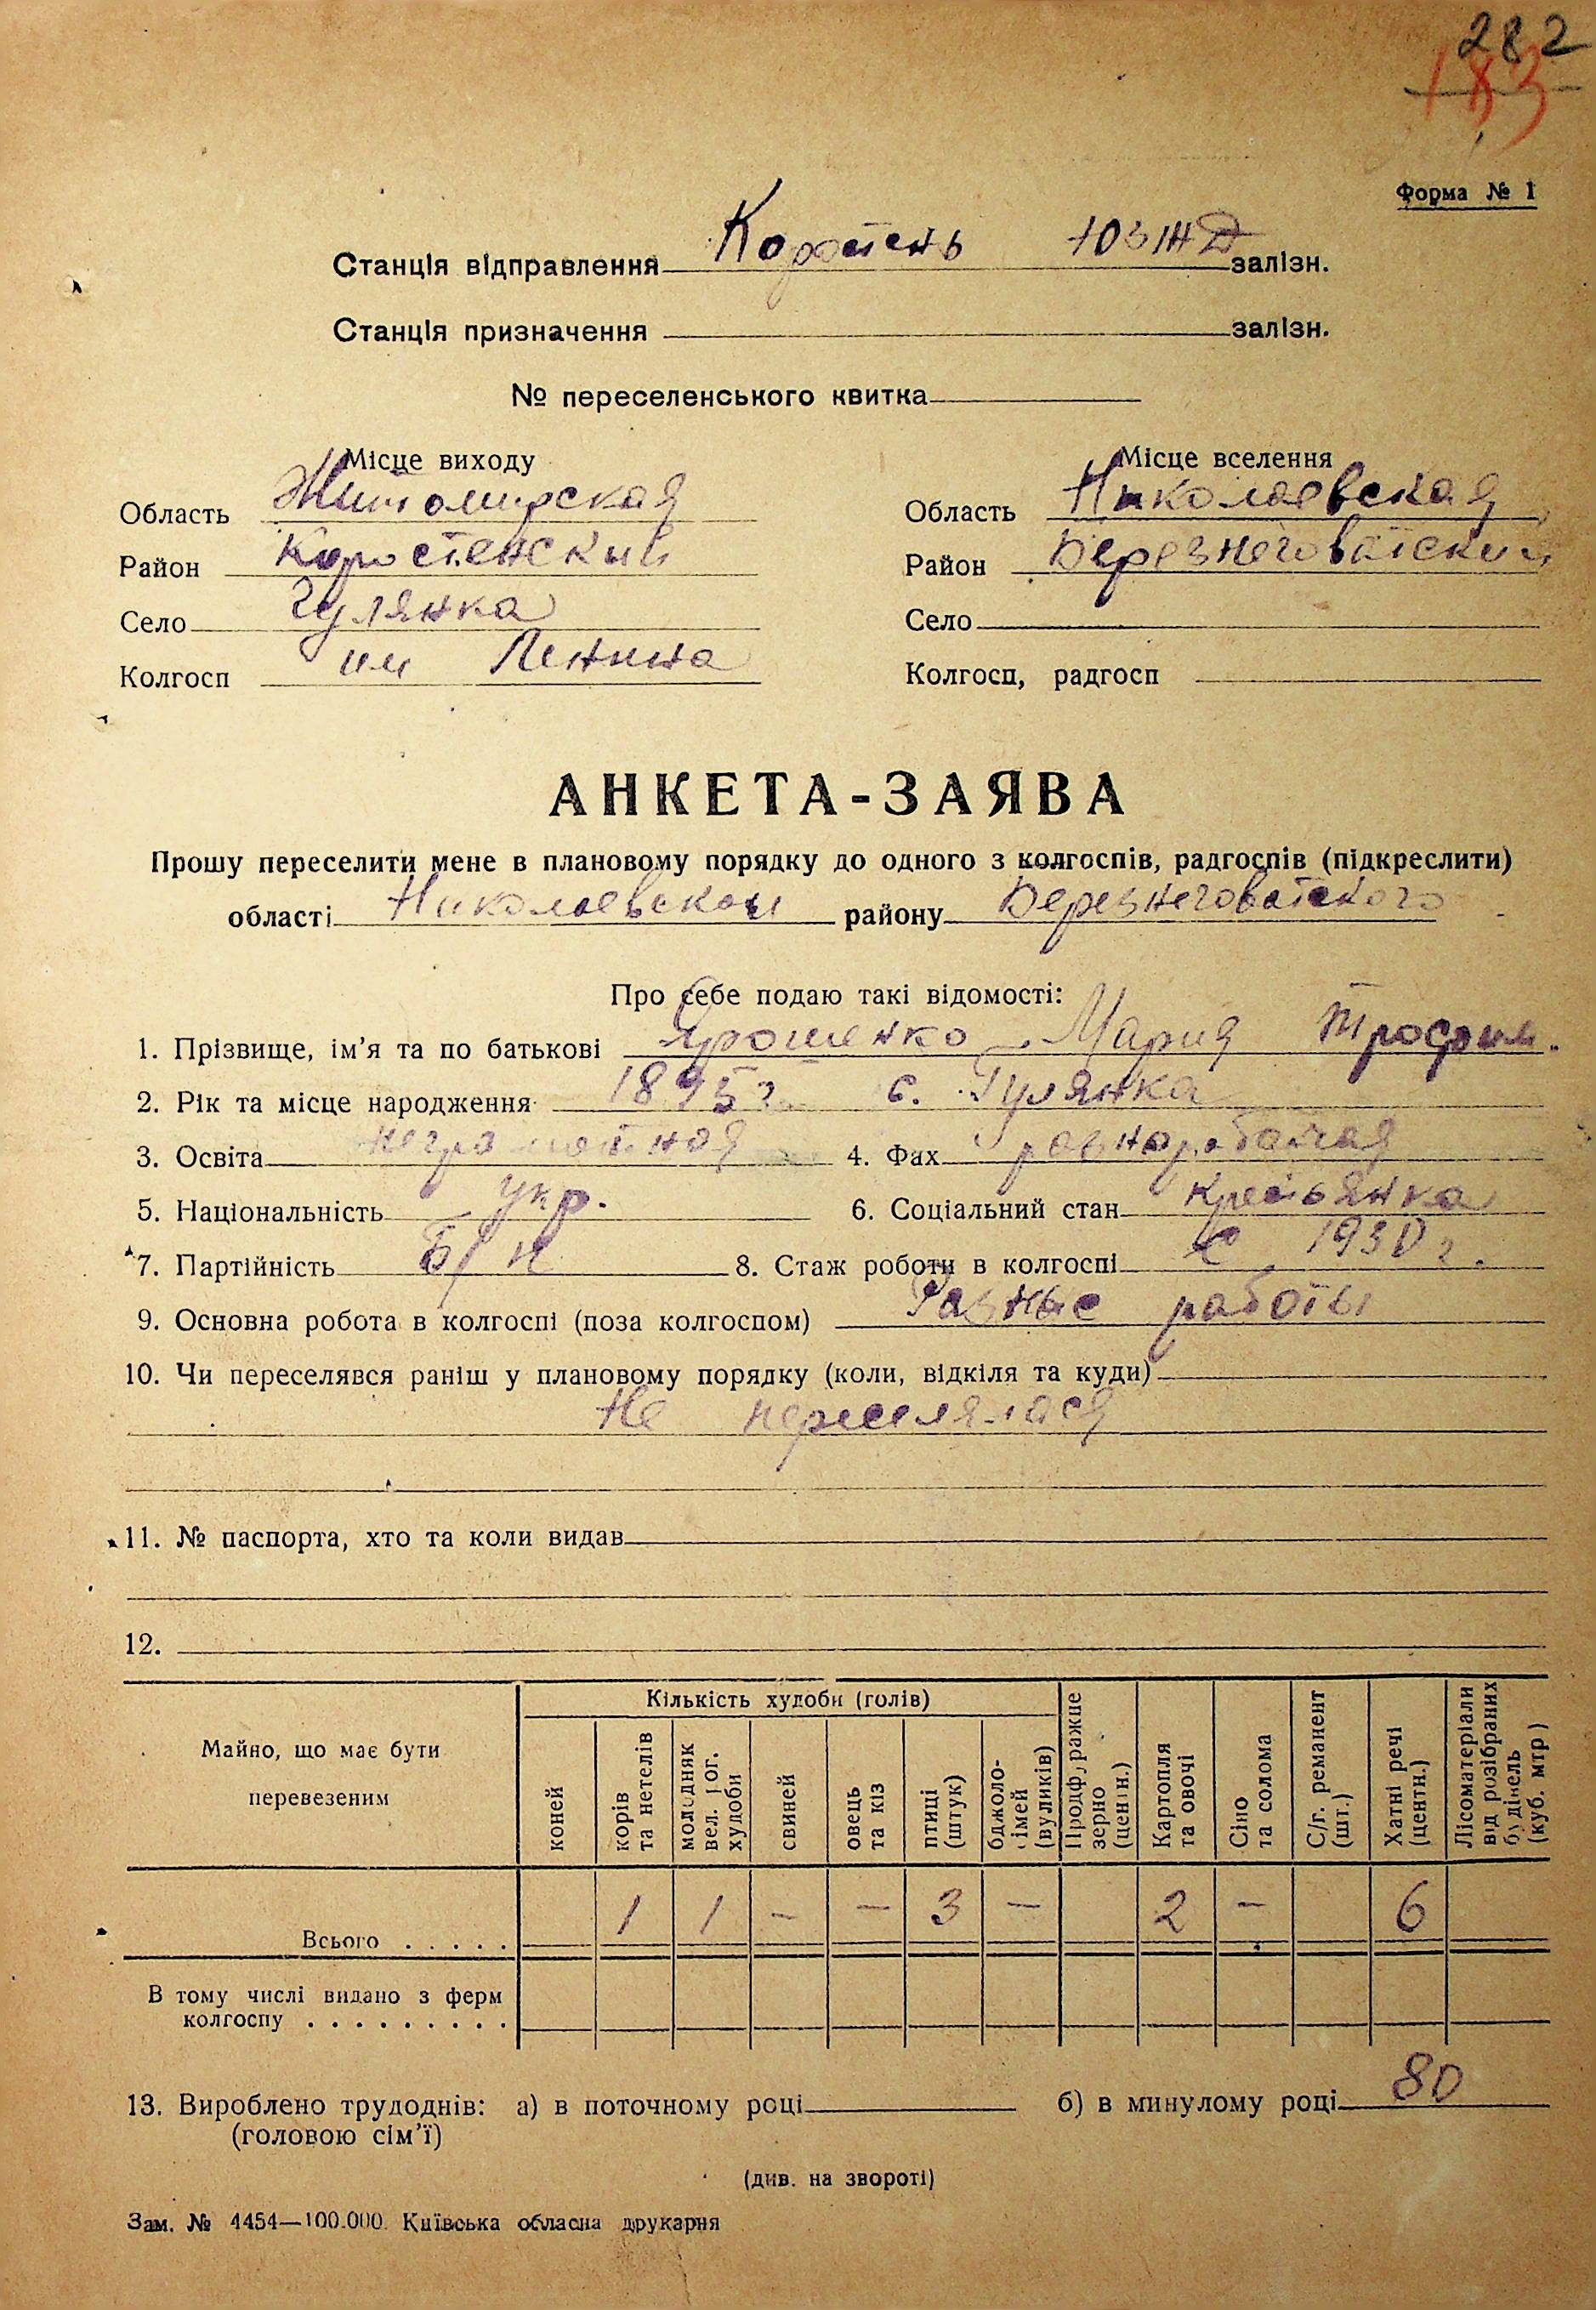 282
183
Форма № 1
Станція відправлення Коростень ЮЗЖД залізн.
Станція призначення залізн.
№ переселенського квитка
Місце виходу
Область Житомирская
Район Коростенский
Село Гулянка
Колгосп им Ленина
Місце вселення
Область Николаевская
Район Березнеговатский
Село
Колгосп, радгосп
АНКЕТА-ЗАЯВА
Прошу переселити мене в плановому порядку до одного з колгоспів, радгоспів (підкреслити)
області Николаевской району Березнеговатского
Про себе подаю такі відомості:
1. Прізвище, ім’я та по батькові Ярошенко Мария Трофим.
2. Рік та місце народження 1895 г. с. Гулянка
3. Освіта неграмотная 4. Фах разнорабочая
5. Національність укр. 6. Соціальний стан крестьянка
7. Партійність Б/п 8. Стаж роботи в колгоспі с 1930 г.
9. Основна робота в колгоспі (поза колгоспом) Разные работы
10. Чи переселявся раніш у плановому порядку (коли, відкіля та куди)
Не переселялася
11. № паспорта, хто та коли видав
12.
Майно, що має бути перевезеним
Кількість худоби (голів)
коней
корів та нетелів
молодняк вел. рог. худоби
свиней
овець та кіз
птиці (штук)
бджоло-сімей (вуликів)
Продфуражне зерно (центн.)
Картопля та овочі
Сіно та солома
С/г. реманент (шт.)
Хатні речі (центн.)
Лісоматеріали від розібраних будівель (куб. мтр)
Всього . . . . . 1 1 – – 3 – 2 – 6
В тому числі видано з ферм
колгоспу . . . . . . . . .
13. Вироблено трудоднів: а) в поточному році б) в минулому році 80
(головою сім’ї)
(див. на звороті)
Зам. № 4454—100.000. Київська обласна друкарня